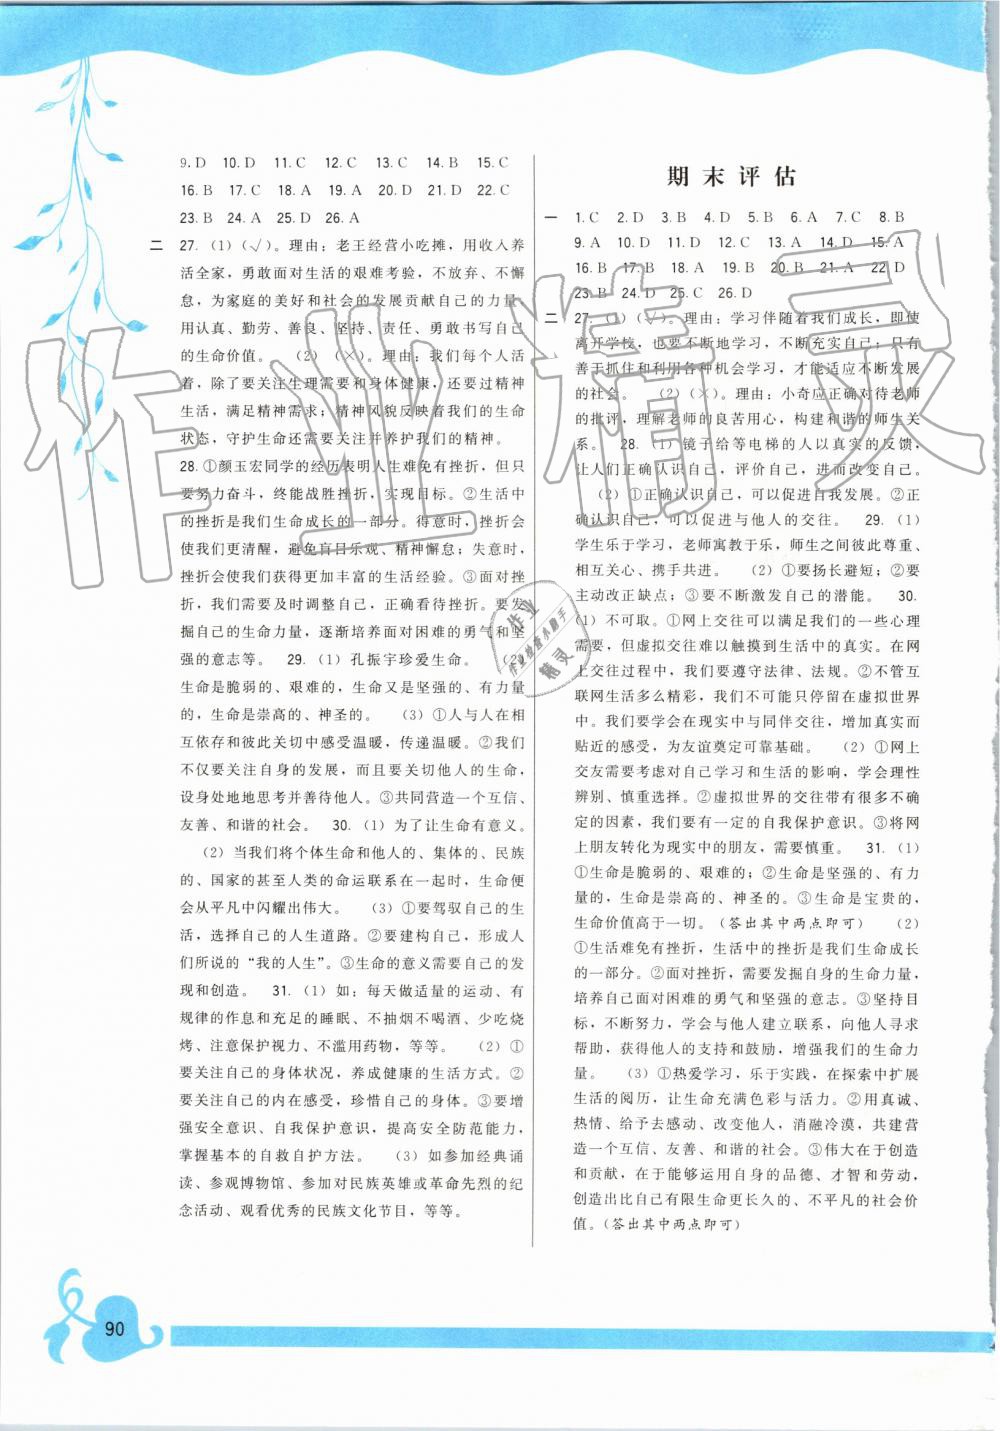 9. D 10. D 11. C 12. C 13. C 14. B 15. C
16. B 17. C 18. A 19. A 20. D 21. D 22. C
23. B 24. A 25. D 26. A
二 27. (1)(√)。理由：老王经营小吃摊，用收入养
活全家，勇敢面对生活的艰难考验，不放弃、不懈
怠，为家庭的美好和社会的发展贡献自己的力量，
用认真、勤劳、善良、坚持、责任、勇敢书写自己
的生命价值。 (2)(×)。理由：我们每个人活
着，除了要关注生理需要和身体健康，还要过精神
生活，满足精神需求；精神风貌反映着我们的生命
状态，守护生命需要关注并养护我们的精神。
28. ①颜玉宏同学的经历表明人生难免有挫折，但只
要努力奋斗，终能战胜挫折，实现目标。②生活中
的挫折是我们生命成长的一部分。得意时，挫折会
使我们更清醒，避免盲目乐观、精神懈怠；失意时，
挫折会使我们获得更加丰富的生活经验。③面对挫
折，我们需要及时调整自己，正确看待挫折。要发
掘自己的生命力量，逐渐培养面对困难的勇气和坚
强的意志等。 29. (1)孔振宇珍爱生命。 (2)
生命是脆弱的、艰难的，生命又是坚强的、有力量
的，生命是崇高的、神圣的。 (3)①人与人在相
互依存和彼此关切中感受温暖，传递温暖。②我们
不仅要关注自身的发展，而且要关切他人的生命，
设身处地地思考并善待他人。③共同营造一个互信、
友善、和谐的社会。 30. (1)为了让生命有意义。
(2)当我们将个体生命和他人的、集体的、民族
的、国家的甚至人类的命运联系在一起时，生命便
会从平凡中闪耀出伟大。 (3)①要驾驭自己的生
活，选择自己的人生道路。②要建构自己，形成人
们所说的“我的人生”。③生命的意义需要自己的发
现和创造。 31. (1)如：每天做适量的运动、有
规律的作息和充足的睡眠、不抽烟不喝酒、少吃烧
烤、注意保护视力、不滥用药物，等等。 (2)①
要关注自己的身体状况，养成健康的生活方式。②
要关注自己的内在感受，珍惜自己的身体。③要增
强安全意识、自我保护意识，提高安全防范能力，
掌握基本的自救自护方法。 (3)如参加经典诵
读、参观博物馆、参加对民族英雄或革命先烈的纪
念活动、观看优秀的民族文化节目，等等。
期末评估
一 1. C 2. D 3. B 4. D 5. B 6. A 7. C 8. B
9. A 10. D 11. D 12. A 13. A 14. D 15. A
16. B 17. B 18. A 19. B 20. B 21. A 22. D
23. B 24. D 25. C 26. D
二 27. (1)(√)。理由：学习伴随着我们成长，即使
离开学校，也要不断地学习，不断充实自己；只有
善于抓住和利用各种机会学习，才能适应不断发展
的社会。 (2)(×)。理由：小奇应正确对待老师
的批评，理解老师的良苦用心，构建和谐的师生关
系。 28. (1)镜子给等电梯的人以真实的反馈，
让人们正确认识自己，评价自己，进而改变自己。
(2)①正确认识自己，可以促进自我发展。②正
确认识自己，可以促进与他人的交往。 29. (1)
学生乐于学习，老师寓教于乐，师生之间彼此尊重、
相互关心、携手共进。 (2)①要扬长避短；②要
主动改正缺点；③要不断激发自己的潜能。 30.
(1)不可取。①网上交往可以满足我们的一些心理
需要，但虚拟交往难以触摸到生活中的真实。在网
上交往过程中，我们要遵守法律、法规。②不管互
联网生活多么精彩，我们不可能只停留在虚拟世界
中。我们要学会在现实中与同伴交往，增加真实而
贴近的感受，为友谊奠定可靠基础。 (2)①网上
交友需要考虑对自己学习和生活的影响，学会理性
辨别、慎重选择。②虚拟世界的交往带有很多不确
定的因素，我们要有一定的自我保护意识。③将网
上朋友转化为现实中的朋友，需要慎重。 31. (1)
①生命是脆弱的、艰难的；②生命是坚强的、有力
量的；生命是崇高的、神圣的；③生命是宝贵的，
生命价值高于一切。(答出其中两点即可) (2)
①生活难免有挫折，生活中的挫折是我们生命成长
的一部分。②面对挫折，需要发掘自身的生命力量，
培养自己面对困难的勇气和坚强的意志。③坚持目
标，不断努力，学会与他人建立联系，向他人寻求
帮助，获得他人的支持和鼓励，增强我们的生命力
量。 (3)①热爱学习，乐于实践，在探索中扩展
生活的阅历，让生命充满色彩与活力。②用真诚、
热情、给予去感动、改变他人，消融冷漠，共建营
造一个互信、友善、和谐的社会。③伟大在于创造
和贡献，在于能够运用自身的品德、才智和劳动，
创造出比自己有限生命更长久的、不平凡的社会价
值。(答出其中两点即可)
作业精灵
作业
作业检查小助手
精灵
90